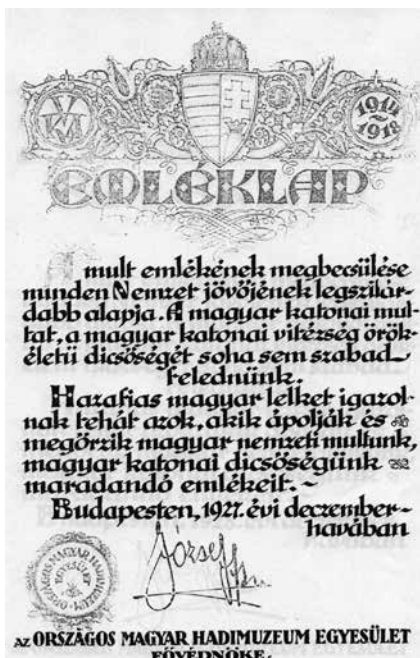 1914
1918
EMLÉKLAP
A mult emlékének megbecsülése
minden Nemzet jövőjének legszilár-
dabb alapja. A magyar katonai mul-
tat, a magyar katonai vitézség örök-
életü dicsőségét soha sem szabad
felednünk.
Hazafias magyar lelket igazol-
nak tehát azok, akik ápolják és
megőrzik magyar nemzeti multunk,
magyar katonai dicsőségünk
maradandó emlékeit. ~
Budapesten, 1927. évi deczember-
havában
ORSZÁGOS MAGYAR HADIMUZEUM
EGYESÜLET
József
AZ ORSZÁGOS MAGYAR HADIMUZEUM EGYESÜLET
FŐVÉDNÖKE.